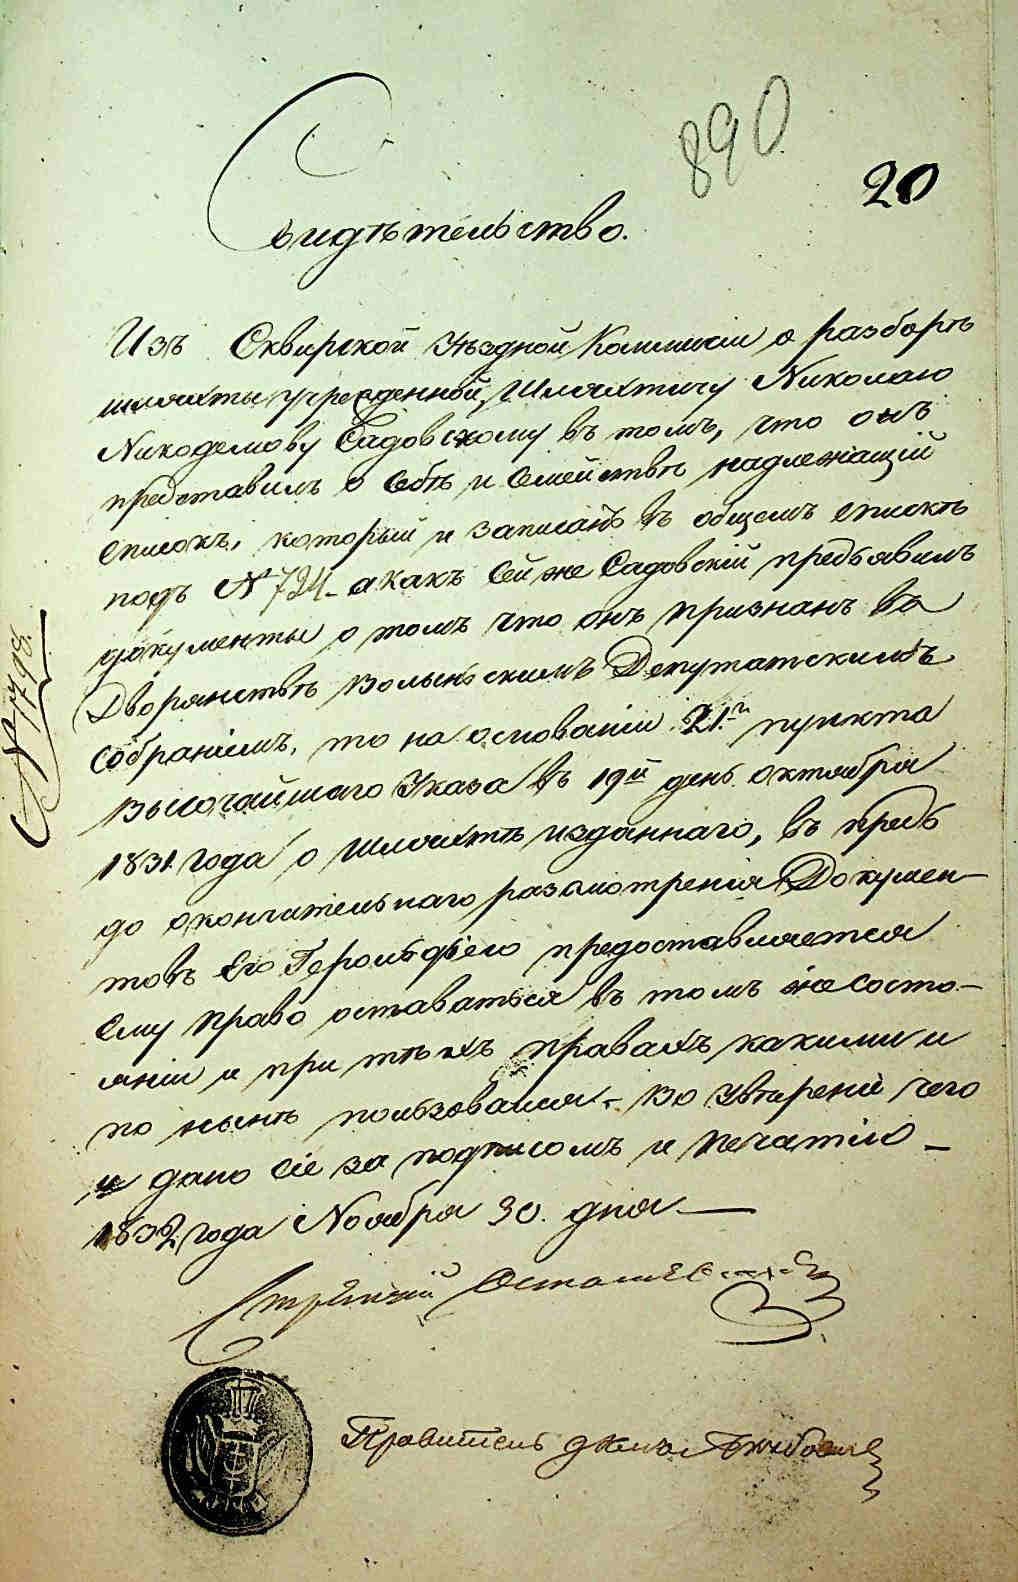 890
20
Свидѣтельство.
Изъ Сквирской Уѣздной Коммисіи о разборѣ
шляхты учрежденной, Шляхтичу Николаю
Никодемову Садовскому въ томъ, что онъ
представилъ о Себѣ и Семействѣ надлежащій
списокъ, который и записанъ въ общемъ спискѣ
подъ № 724 - а какъ Сей же Садовскій предъявилъ
документы о томъ что онъ признанъ въ
Дворянствѣ Волынскимъ Депутатскимъ
собраніемъ, то на основаніи 21.го пункта
Высочайшаго Указа въ 19й день октября
1831 года о шляхтѣ изданнаго, въ предь
до окончательнаго разсмотренія Докумен-
товъ Его Герольдіею предоставляется
Ему право оставаться въ томъ же состо-
яніи и при тѣхъ правахъ какими и
по нынѣ пользовался - Во Увѣреніе чего
и дано сіе за подписомъ и печатію -
1832 года Ноября 30. дня —
№ 7798.
Стряпчій
Правитель дѣлъ